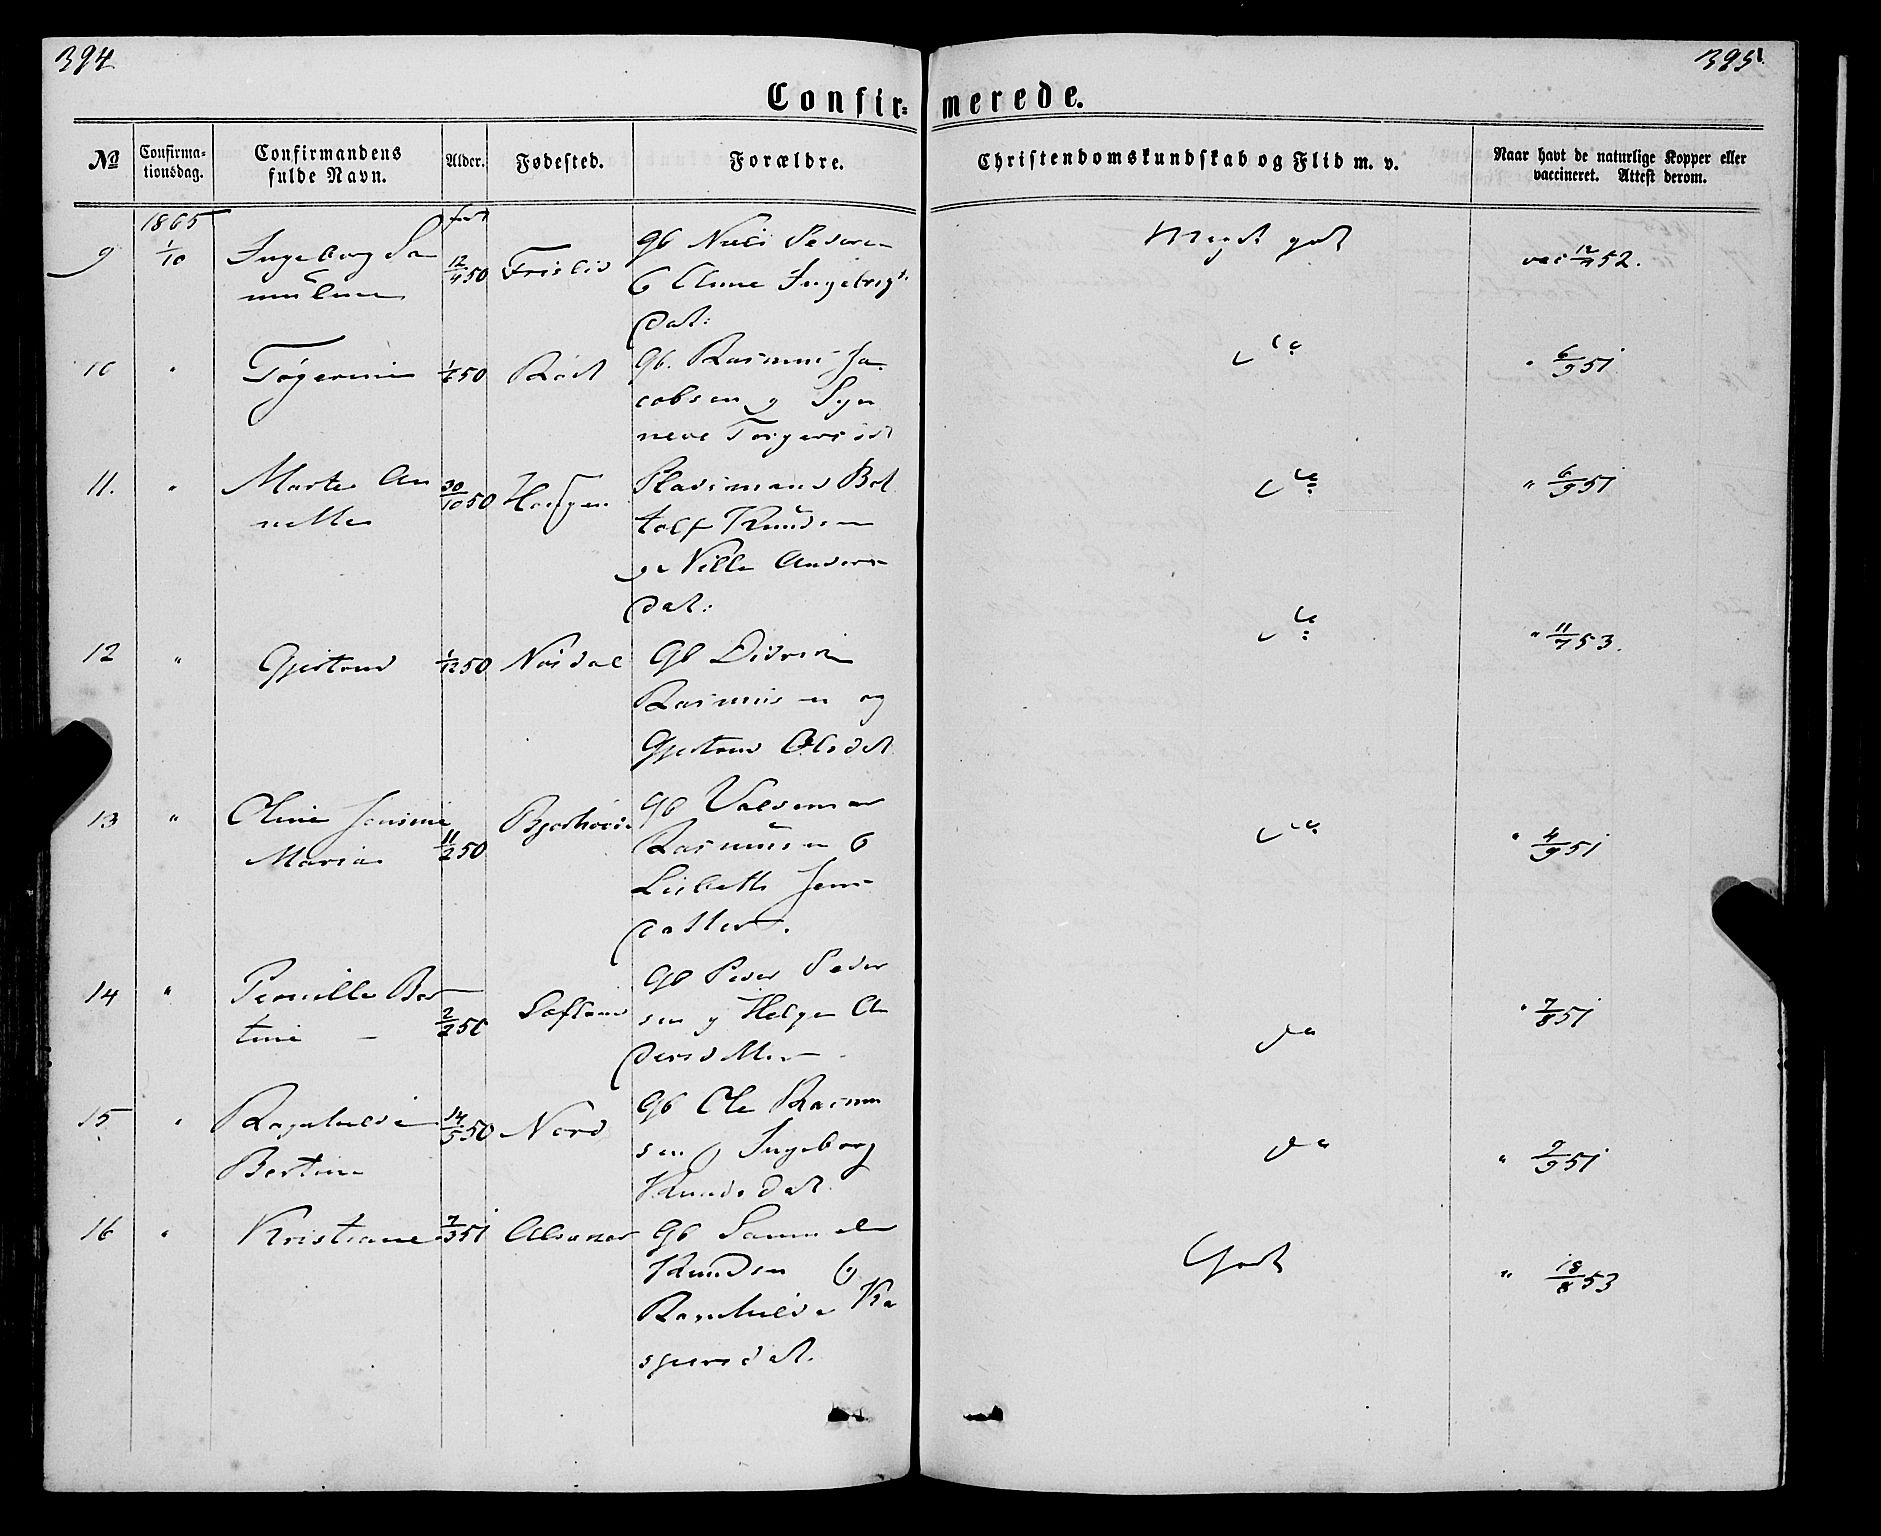 394
395
Confir-
merede.
№
Confirma-
tionsdag.
Confirmandens
fulde Navn.
Alder.
Fødested.
Forældre.
Christendomskundskab og Flid m. v.
Naar havt de naturlige Kopper eller
vaccineret. Attest derom.
1865
født
9
1/10
Ingeborg Sa
muline
12/4 50
Gb Niels Peders
& Anne Ingebrigts
Dat:
Meget godt
vac 12/7 52.
10
"
Tøgerine
50
Gb. Rasmus Ja
cobsen og Syn
neve Torgersdt
" 6/9 51
11.
"
Marte An
nette
30/10 50
Haugen
Pladsmand Bot
tolf Knudsen
og Nille Anders
dat:
" 6/9 51
12
"
Gjertrud
1/12 50
Gb Didrik
Rasmusen og
Gjertrud Olsdat
" 11/7 53.
13
"
Oline Jensine
Maria
11/2 50
Gb Valdemar
Rasmusen &
Lisbeth Jens
datter.
" 4/9 51
14
"
Pernille Ber
tine
2/2 50
Gb Peder Peder
sen og Helge An
dersdtter
da
" 7/8 51
15
"
Ragnhilde
Bertine
14/5 50
Nord
Gb Ole Rasmu
sen og Ingeborg
Knudsdat.
da
" 2/9 51
16
"
Kristiane
7/3 51
Gb Samuel
Knudsen og
Ragnhilde Ka
spersdat.
Godt
" 18/8 53